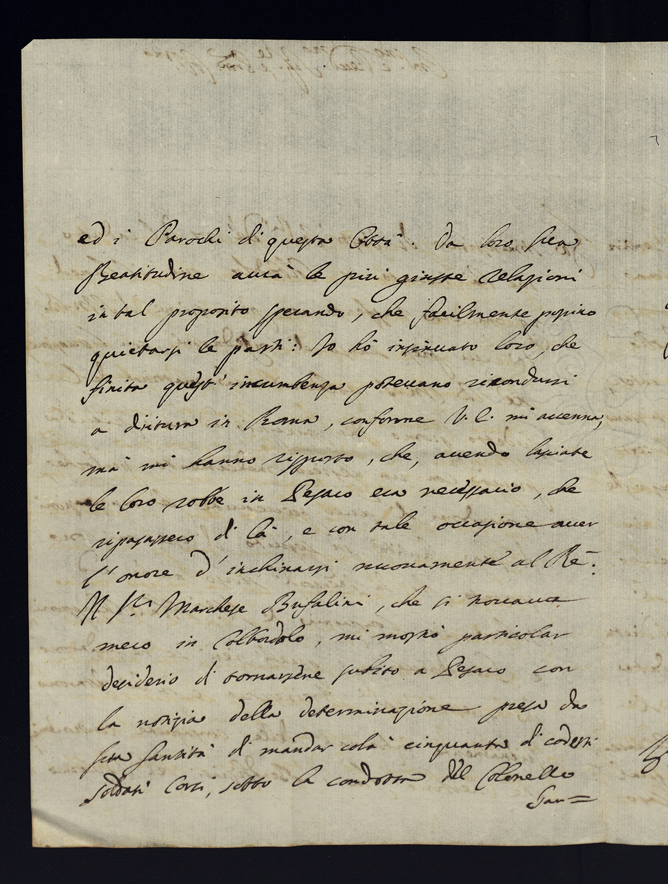 ed i Parochi di questa Città. Da loro sua
Beatitudine avrà le più giuste relazioni
in tal proposito sperando, che facilmente possino
quietarsi le parti: Io hò insinuato loro, che
finita quest' incumbenza potevano ricondursi
a diritura in Roma, conforme V.E. mi accenna,
mà mi hanno risposto, che, avendo lasciate
le loro robbe in Pesaro era necessario, che
ripassassero di là, e con tale occasione aver
l'onore d'inchinarsi nuovamente al Rè.
Il Sig.r Marchese Bufalini, che si trovava
meco in Colbordolo, mi mostrò particolar
desiderio di tornarsene subito a Pesaro con
la notizia della determinazione presa da
sua Santità di mandar colà cinquanta di codesti
soldati Corsi, sotto la condotta del Colonello